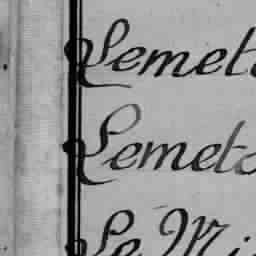 Lemets
Lemets
Le Mi